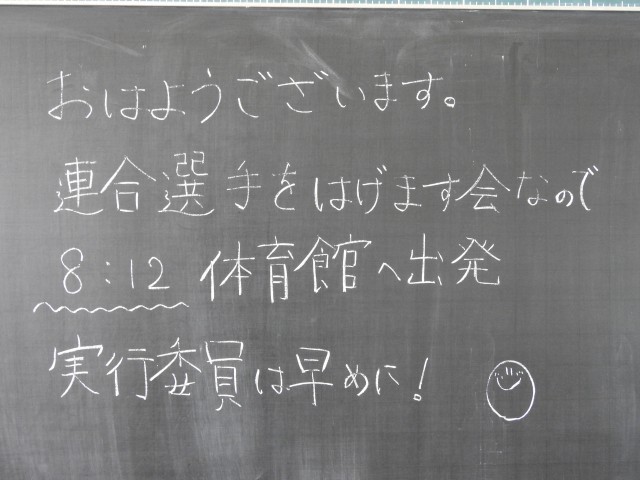 おはようございます。
連合選手をはげます会なので
8:12 体育館へ出発
実行委員は早めに!